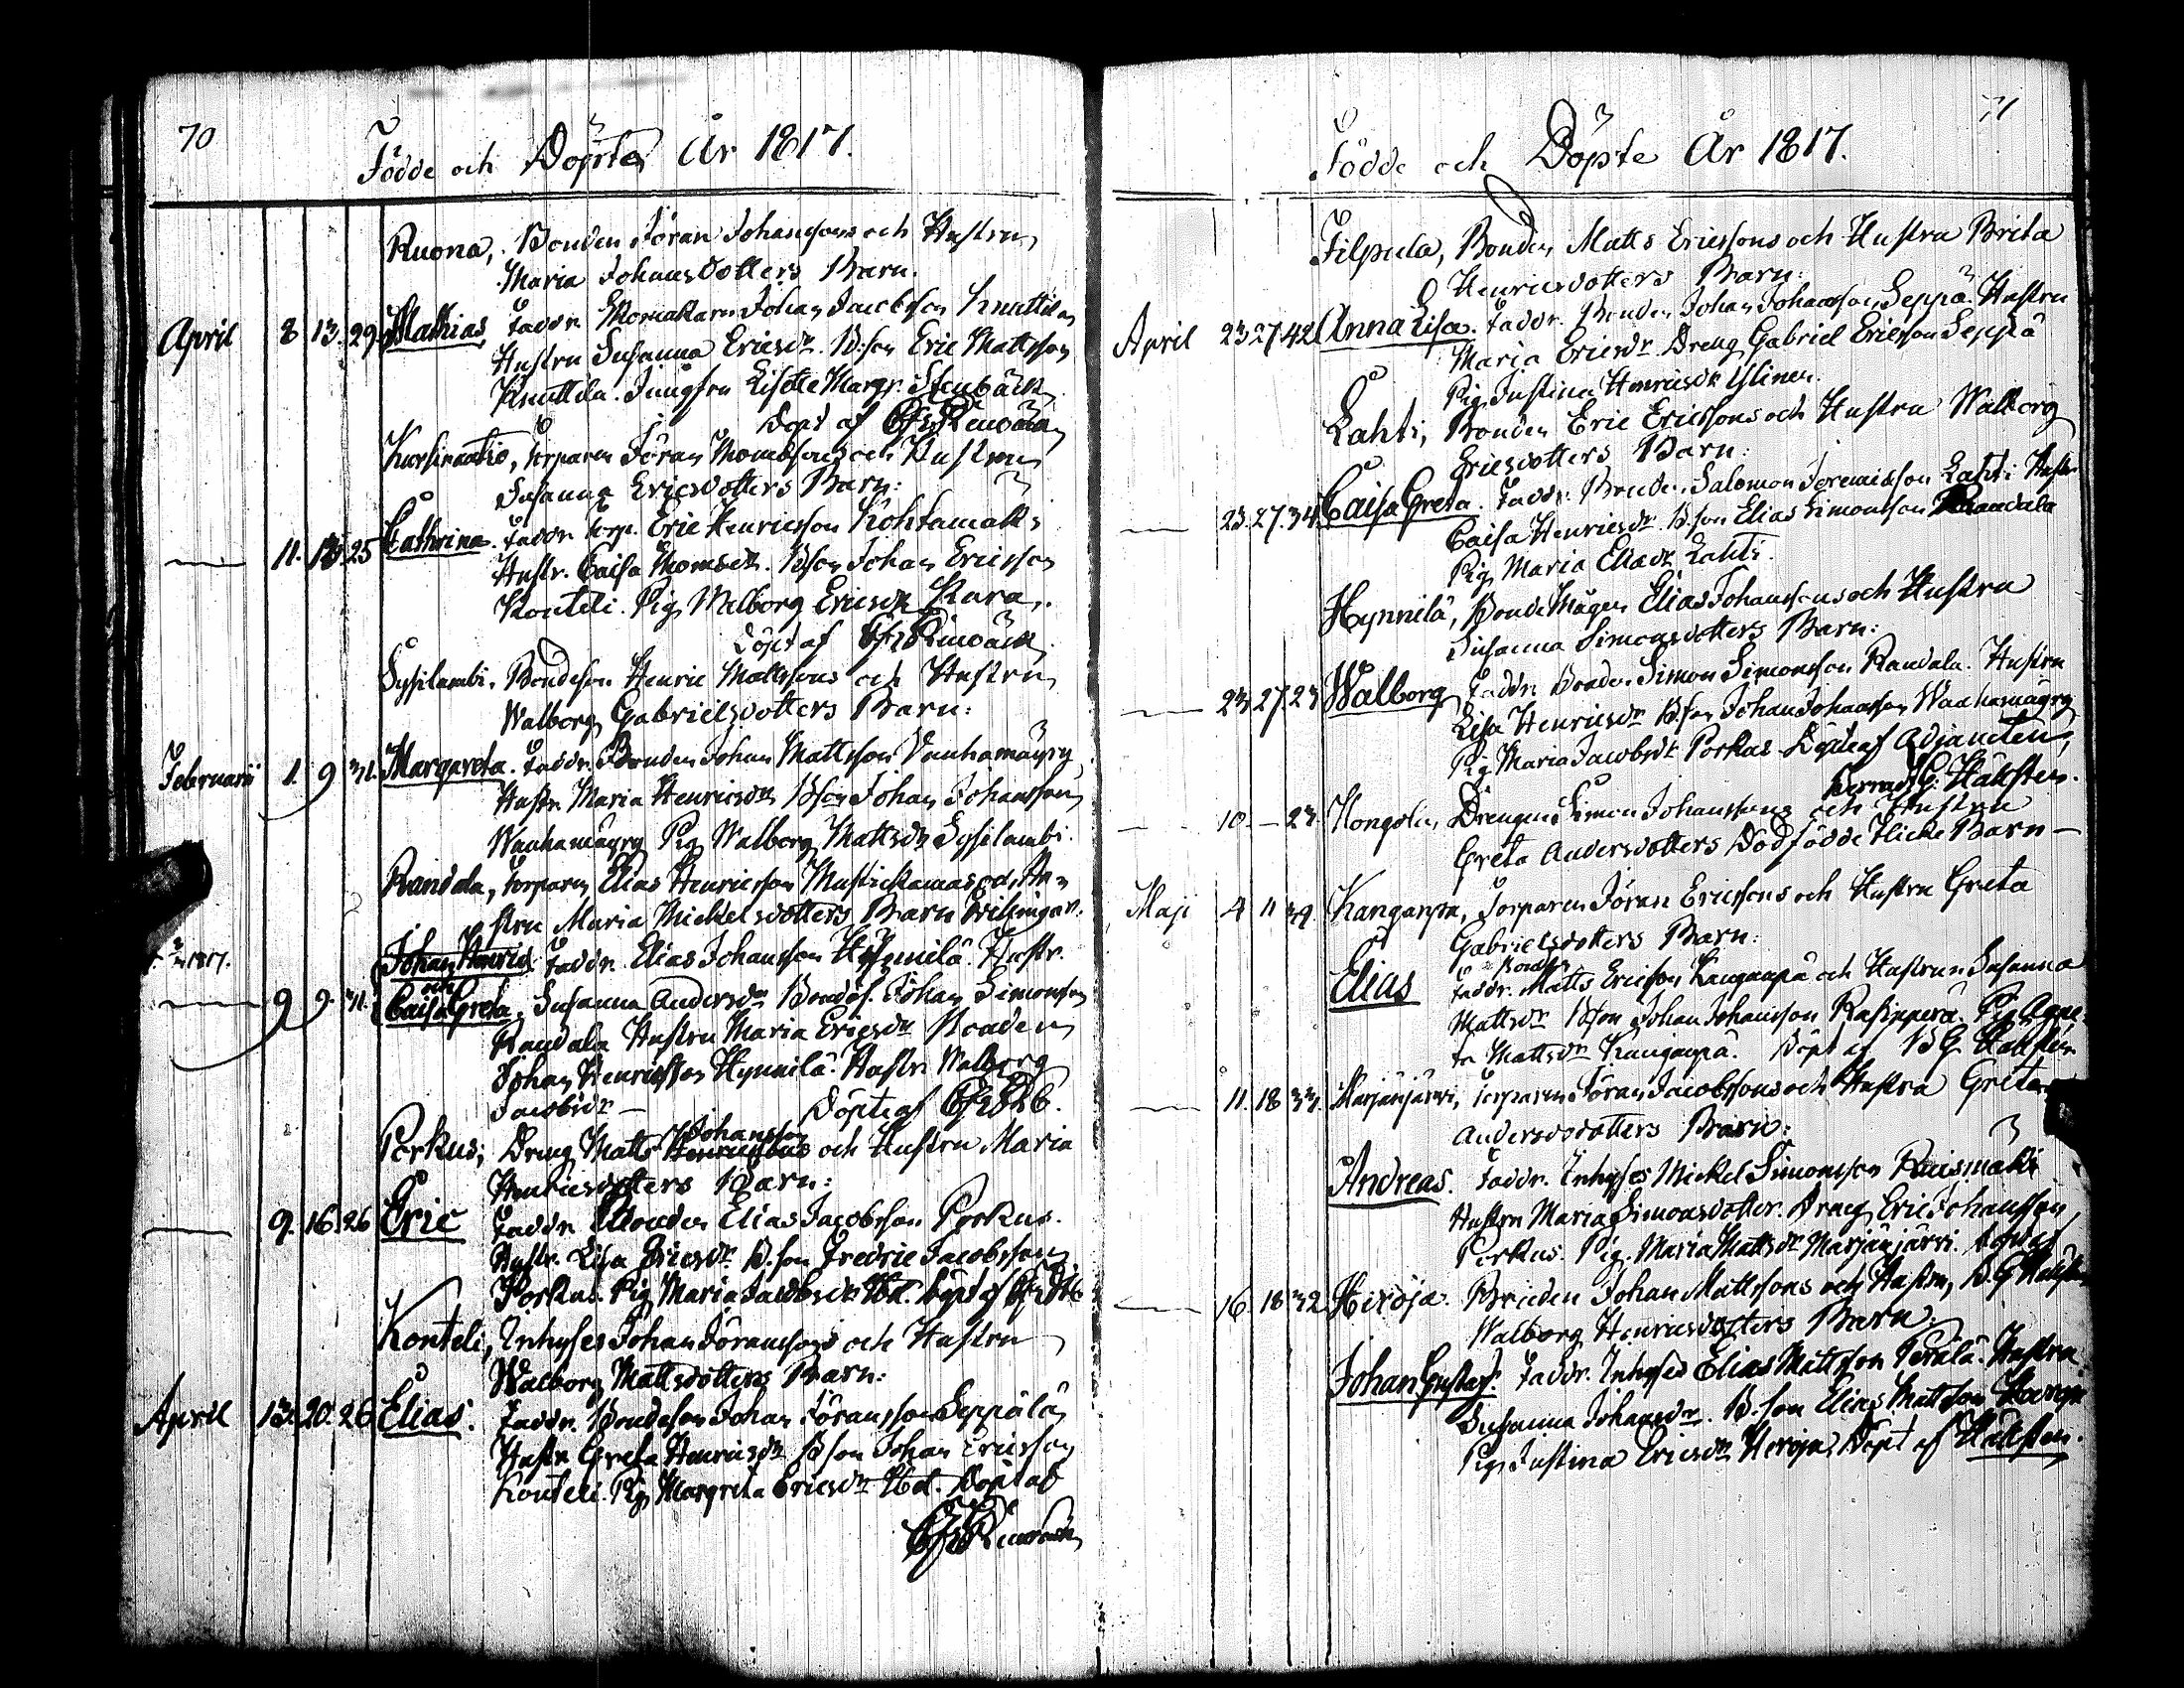 70
Födde och Döpte År 1817.
Ruona, Bonden Jöran Johanssons och Hustrun
Maria Johansdotters Barn.
April 8 13. 29. Mathias, Faddr. Skomakaren Johan Jacobsson Knuttila
Hustru Susanna Ericsdr. B:son Eric Mattsson
Knuttila. Jungfru Lisette Margr. Stenbäck
Döpt af
Torparen Jöran Thomassons och Hustrun
Susanna Ericsdotters Barn:
11. 13 25 Cathrina. Faddr. torp. Eric Henricsson Kohtamäki
Hustr. Caisa Thomsdr. Bson Johan Ericsson
Konteli. Pig. Walborg Ericsdr
Döpt af
Sysilambi. Bondeson Henric Mattssons och Hustrun
Walborg Gabrielsdotters Barn:
Februarii 1. 9 31. Margareta. Faddr. Bonden Johan Mattsson Vanhamäyry
Hustr. Maria Henricsdr Bson Johan Johansson
Wanhamäyry Pig. Walborg Mattsdr Sysilambi.
Randala, torparen Elias Henricsson och Hu-
stru Maria Mickelsdotters Barn Tvillingar.
1817.
Johan Henric Faddr. Elias Johansson Hynnilä. Hustr.
och
9 9. 31. Caisa Greta. Susanna Andersdr Bondes. Johan Simonsson
Randala Hustru Maria Ericsdr Bonden
Johan Henricsson Hynnilä. Hustr. Walborg
Jacobsdr — Döpte af
Johansson
Porkus, Dreng Matts och Hustru Maria
Henricsdotters Barn:
9. 16. 26 Eric Faddr. Bonden Elias Jacobsson Porkus.
Hustr. Lisa Ericsdr B.son Fredric Jacobsson
Porkus. Pig. Maria Jacobsdr Ibd. döpt af
Konteli, Inhyses Johan Jöranssons och Hustrun
Walborg Mattsdotters Barn:
April 13. 20. 26 Elias. Faddr. Bondeson Johan Jöransson Seppälä
Hustr. Greta Henricsdr Bson Johan Ericsson
Konteli. Pig. Margreta Ericsdr Ibd. Döpt af
71
Födde och Döpte År 1817.
Filpula, Bonden Matts Ericssons och Hustru Brita
Henricsdotters Barn:
April 23 27 42 Anna Lisa. Faddr. Bonden Johan Johansson Seppä. Hustru
Maria Ericsdr. Dreng Gabriel Ericsson Seppä
Pig. Justina Henricsdr Ylinen.
Lahti, Bonden Eric Ericssons och Hustru Walborg
Ericsdotters Barn:
23. 27. 34. Caisa Greta. Faddr. Bonden Salomon Jeremiasson Lahti Hustr
Caisa Henricsdr. B.son Elias Simonsson Randala
Pig. Maria Eliadr Lahti.
Hynnilä, BondeMågen Elias Johanssons och Hustru
Susanna Simonsdotters Barn:
23. 27. 23 Walborg Faddr. Bonden Simon Simonsson Randala. Hustru
Lisa Henricsdr B.son Johan Johansson Wanhamäyry
Pig. Maria Jacobsdr Porkus. Döpte af Adjuncten
Herrad. G. Hällsten.
10. — 23. Hongola, Drengen Simon Johanssons och Hustrun
Greta Andersdotters Dödfödde Flicke Barn —
Maji 4 11 39. Kanganpä, Torparen Jöran Ericssons och Hustru Greta
Gabrielsdotters Barn:
Bonden
Elias Faddr. Matts Ericsson Kangaspä och Hustrun Susanna
Mattsdr Bson Johan Johansson Pig. Agne-
ta Mattsdr Kangaspä. Döpt af B G Hällsten
11. 18 33. Marjänjärvi, Torparen Jöran Jacobssons och Hustru Greta
Andersdotters Barn:
Andreas. Faddr. Inhyses Mickel Simonsson Ruismäki
Hustru Maria Simonsdotter. Dreng Eric Johansson
Porkus. Pig. Maria Mattsdr Marjänjärvi. Döpt af
16. 18 32 Heröja. Bonden Johan Mattssons och Hustru, B. G Hällsten
Walborg Henricsdotters Barn.
Johan Gustaf. Faddr. Inhyses Elias Mattsson Perälä. Hustru
Susanna Johansdr. B.son Elias Mattsson
Pig. Justina Ericsdr Heröja, Döpt af Hällsten.